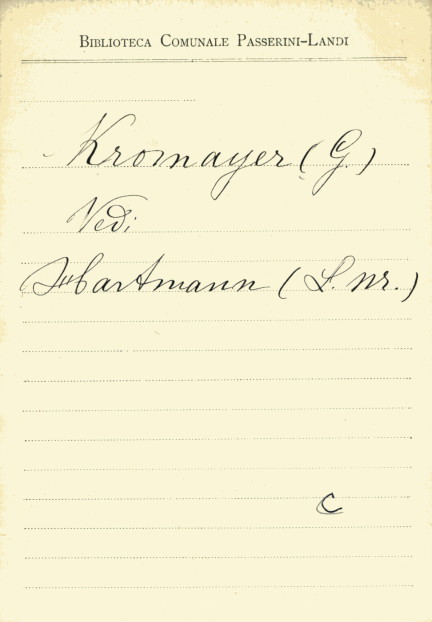 BIBLIOTECA COMUNALE PASSERINI-LANDI
Kromayer (G.)
Vedi
Hartmann (L. M.)
C